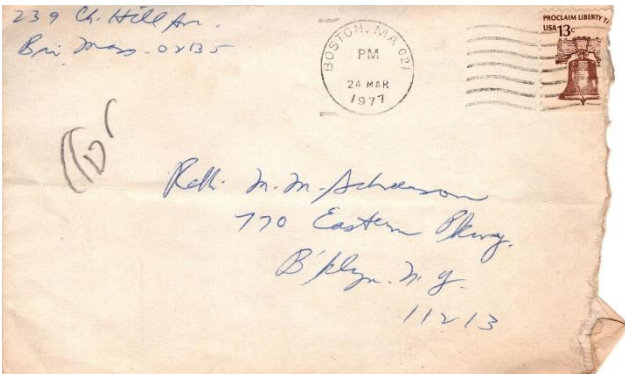 239 Ch. Hill Av.
Bri. Mass. 02135
BOSTON, MA 021
PM
24 MAR
1977
PROCLAIM LIBERTY
USA 13c
Rabbi M. M. Schneerson
770 Eastern Pkwy.
B'klyn. N.Y.
11213